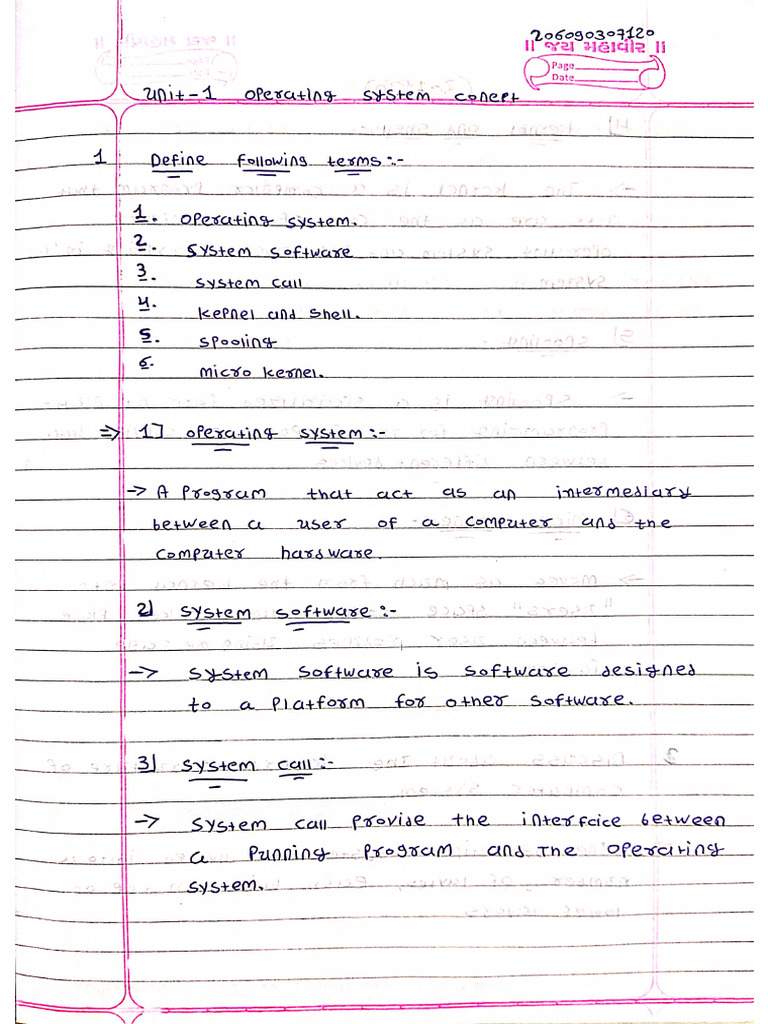 206090307120
॥ જય મહાવીર ॥
Page
Date
Unit-1 operating system conept
1 Define following terms:-
1. operating system.
2. system software
3. system call
4. kernel and shell.
5. spooling
6. micro kernel.
⇒ 1] operating system:-
→ A program that act as an intermediary
between a user of a computer and the
computer hardware.
2) system software:-
→ system software is software designed
to a platform for other software.
3) system call:-
→ system call provide the interface between
a running program and the operating
system.